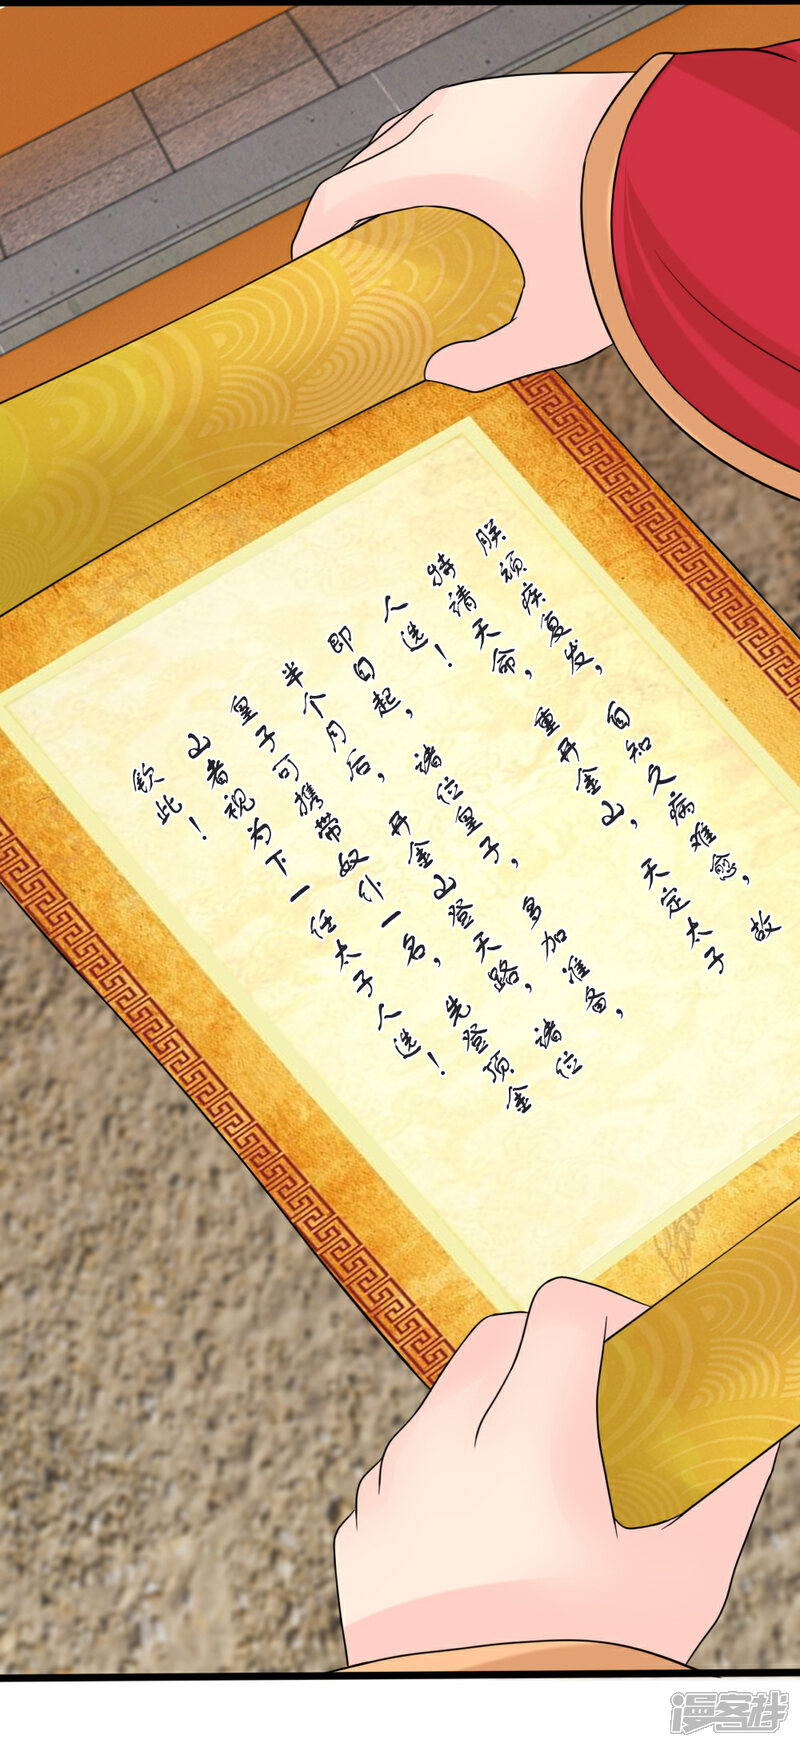 朕顽疾复发，自知久病难愈，故
特请天命，重开金山，天定太子
人选！
即日起，诸位皇子，多加准备，
半个月后，开金山登天路，诸位
皇子可携带奴仆一名，先登顶金
山者视为下一任太子人选！
钦此！
漫客栈